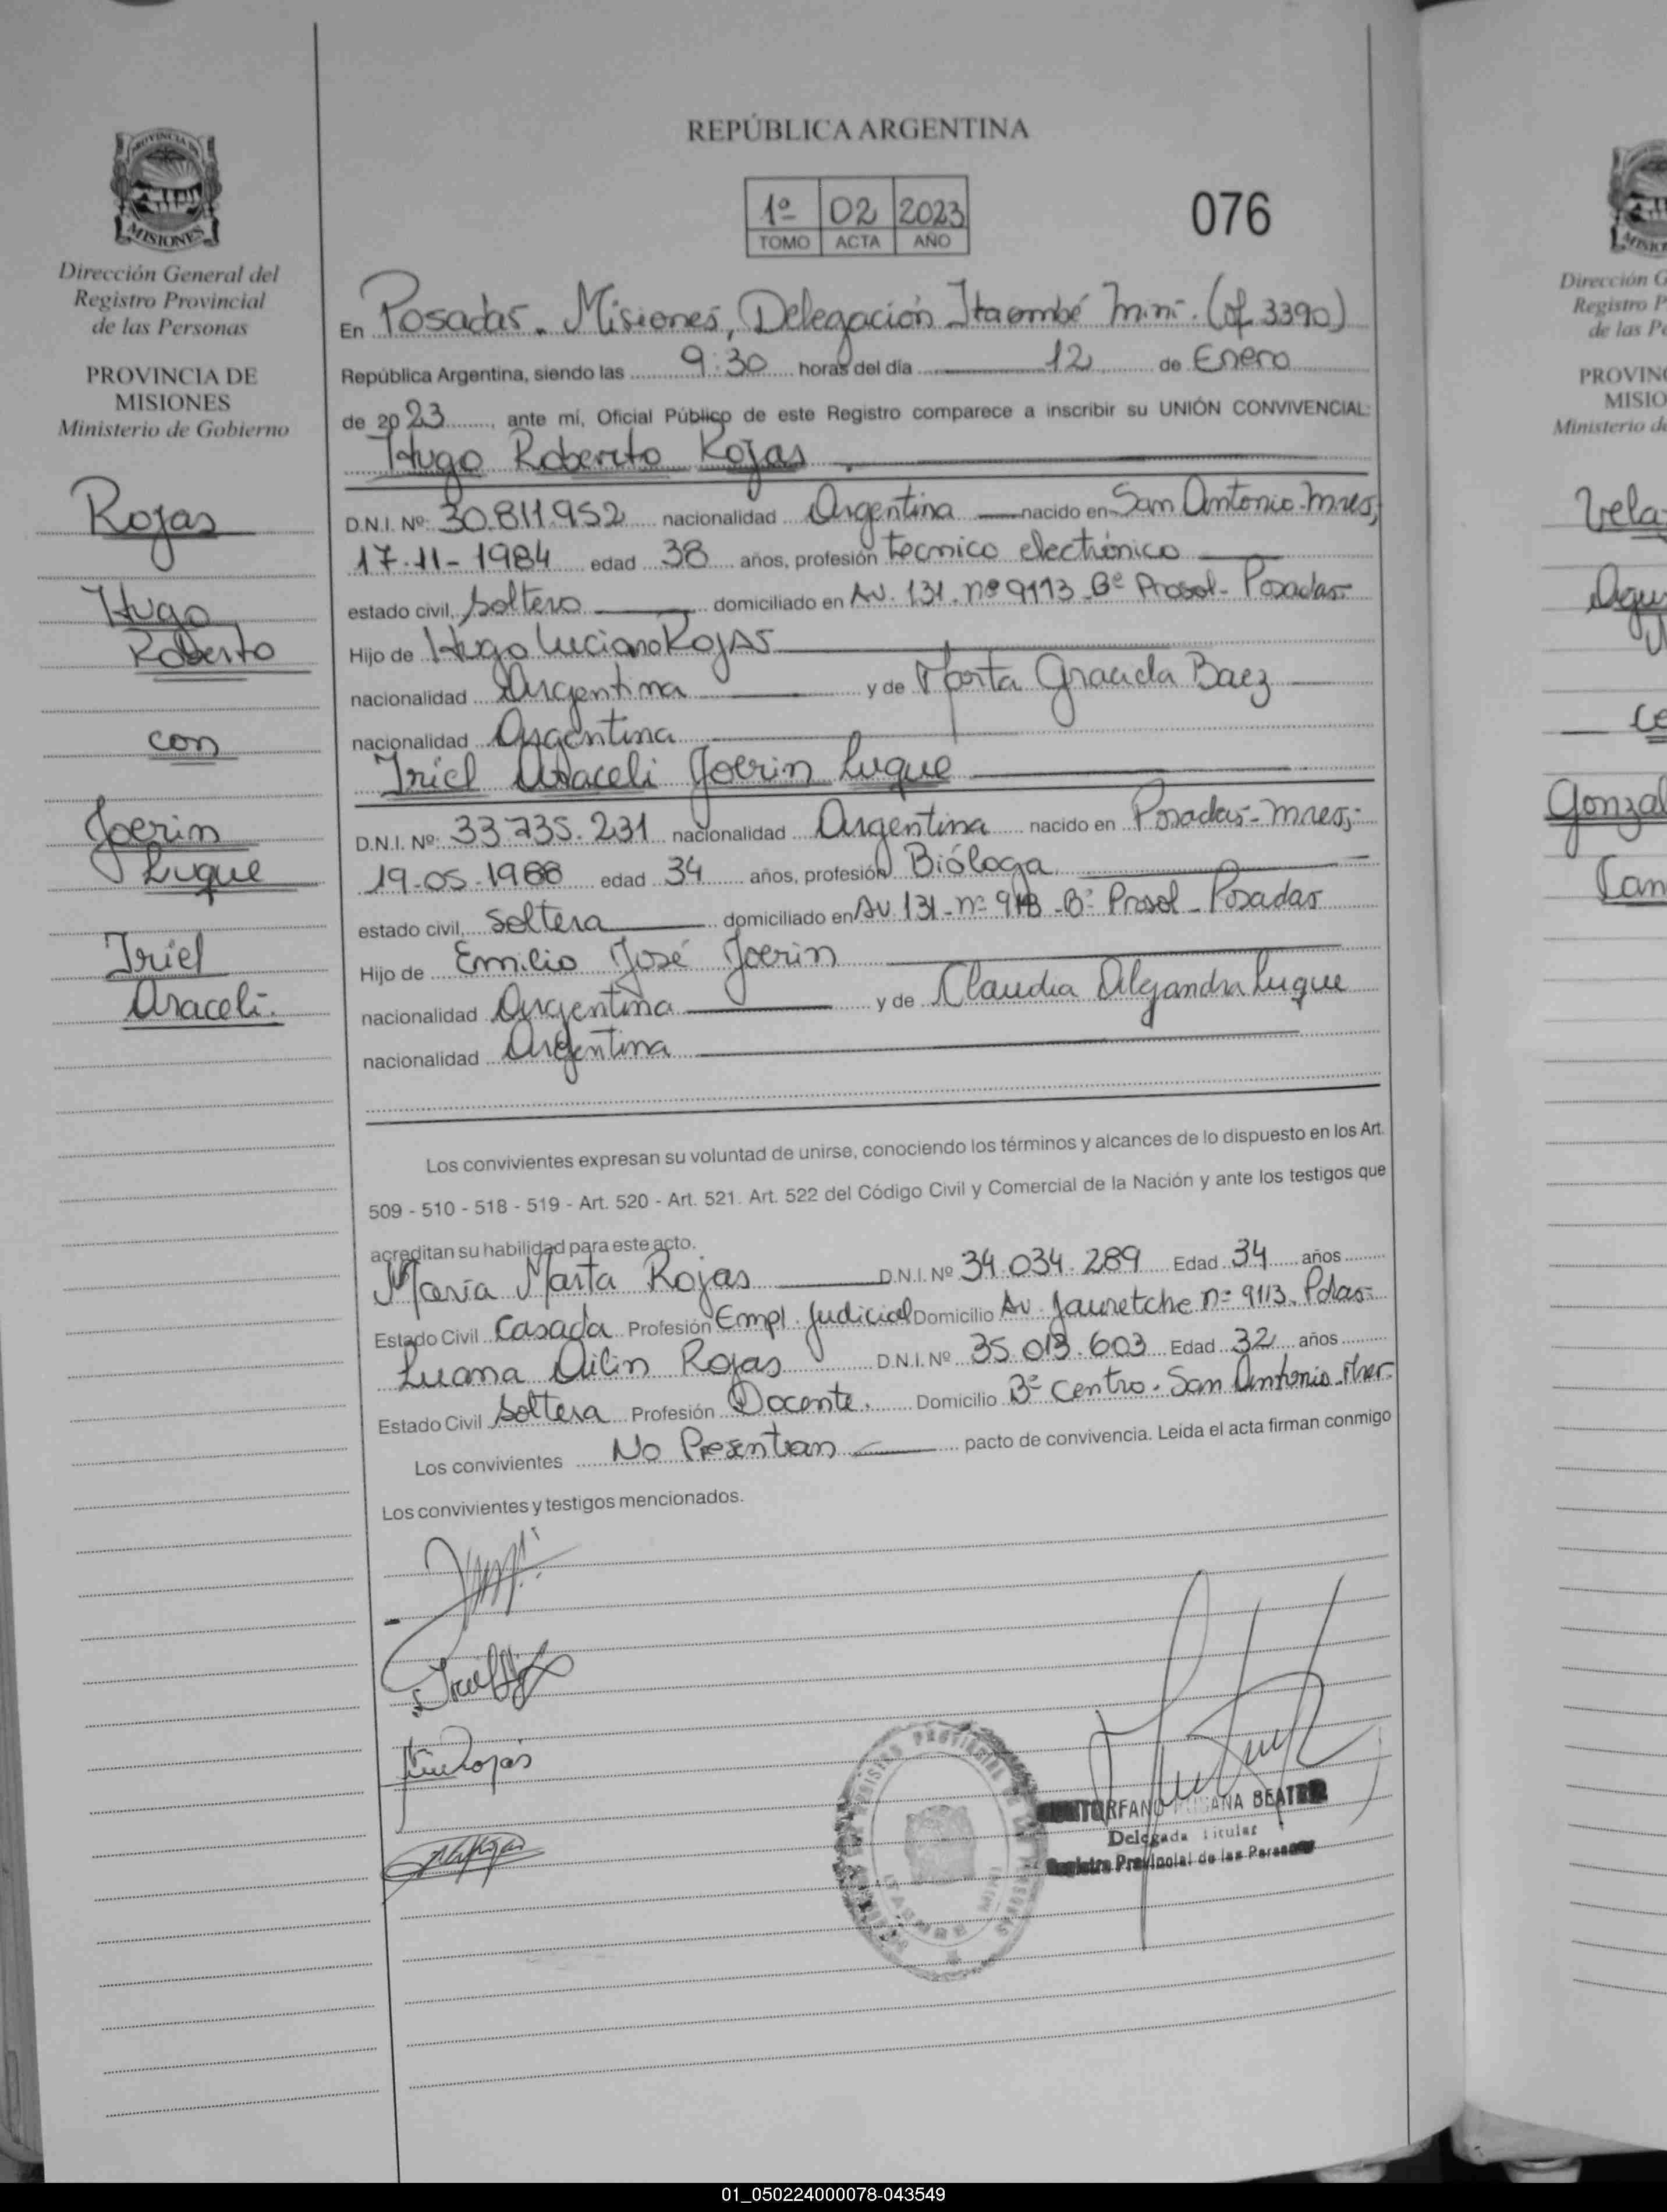 REPÚBLICA ARGENTINA
1º 02 2023
TOMO ACTA AÑO
076
PROVINCIA DE
MISIONES
Dirección General del
Registro Provincial
de las Personas
PROVINCIA DE
MISIONES
Ministerio de Gobierno
Rojas
Hugo
Roberto
con
Joerin
Luque
Iriel
Araceli.
En Posadas. Misiones, Delegación Itaembé Miní. (of. 3390)
República Argentina, siendo las 9:30 horas del día 12 de Enero
de 2023, ante mí, Oficial Público de este Registro comparece a inscribir su UNIÓN CONVIVENCIAL:
Hugo Roberto Rojas
D.N.I. Nº: 30.811.952 nacionalidad Argentina nacido en San Antonio-Mnes;
17-11-1984 edad 38 años, profesión tecnico electrónico
estado civil, soltero domiciliado en Av. 131. nº 9113 Bº Prosol- Posadas-
Hijo de Hugo Luciano Rojas
nacionalidad Argentina y de Marta Graciela Baez
nacionalidad Argentina
Iriel Araceli Joerin Luque
D.N.I. Nº: 33.735.231 nacionalidad Argentina nacido en Posadas-Mnes;-
19-05-1988 edad 34 años, profesión Bióloga
estado civil, soltera domiciliado en Av 131-nº 9113-Bº Prosol-Posadas
Hijo de Emilio José Joerin
nacionalidad Argentina y de Claudia Alejandra Luque
nacionalidad Argentina
Los convivientes expresan su voluntad de unirse, conociendo los términos y alcances de lo dispuesto en los Art.
509 - 510 - 518 - 519 - Art. 520 - Art. 521. Art. 522 del Código Civil y Comercial de la Nación y ante los testigos que
acreditan su habilidad para este acto.
María Marta Rojas D.N.I. Nº 34.034.289 Edad 34 años
Estado Civil Casada Profesión Empl. Judicial Domicilio Av. Jauretche nº 9113. Pdas-
Luana Ailin Rojas D.N.I. Nº 35.013.603 Edad 32 años
Estado Civil soltera Profesión Docente. Domicilio Bº Centro. San Antonio.
Los convivientes No Presentan pacto de convivencia. Leida el acta firman conmigo
Los convivientes y testigos mencionados.
BEATRIZ
Delegada Titular
Registro Provincial de las Personas
Dirección G
Registro P
de las Pe
PROVIN
MISIO
Ministerio de
Vela
Agu
Co
Gonzal
Can
01_050224000078-043549